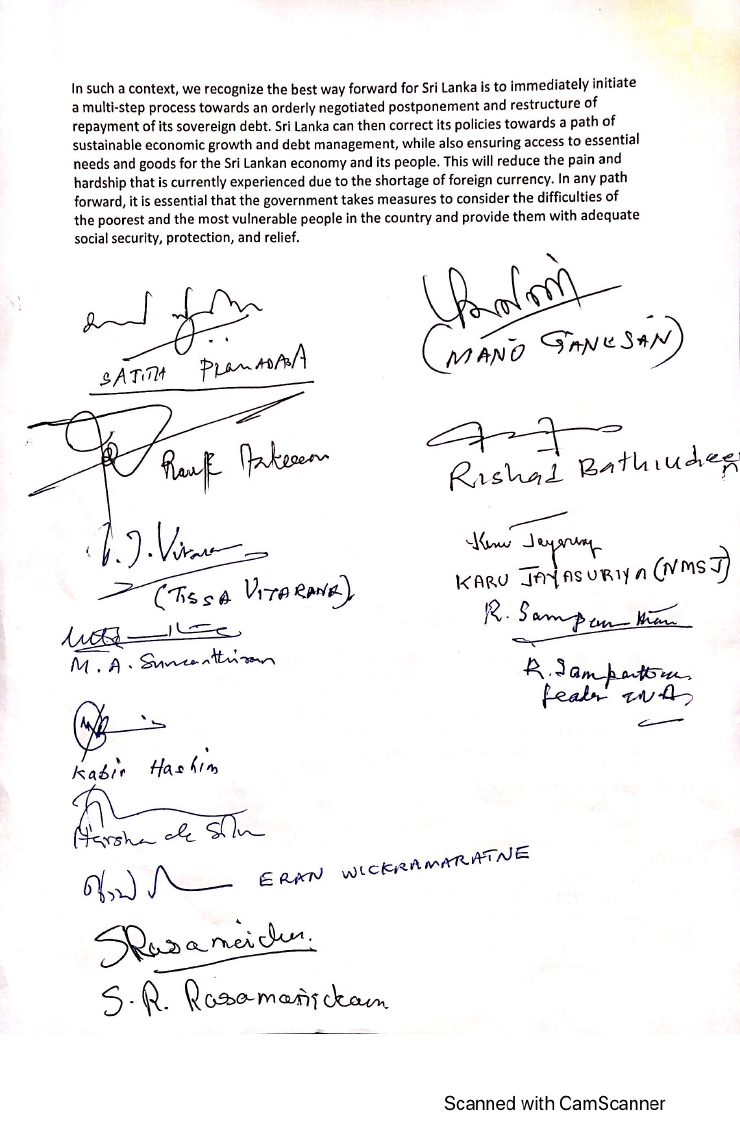 In such a context, we recognize the best way forward for Sri Lanka is to immediately initiate
a multi-step process towards an orderly negotiated postponement and restructure of
repayment of its sovereign debt. Sri Lanka can then correct its policies towards a path of
sustainable economic growth and debt management, while also ensuring access to essential
needs and goods for the Sri Lankan economy and its people. This will reduce the pain and
hardship that is currently experienced due to the shortage of foreign currency. In any path
forward, it is essential that the government takes measures to consider the difficulties of
the poorest and the most vulnerable people in the country and provide them with adequate
social security, protection, and relief.
SAJITH PREMADASA
(MANO GANESAN)
Rauff Hakeem
Rishad Bathiudeen
(TISSA VITARANA)
KARU JAYASURIYA (NMSJ)
M. A. Sumanthiran
R. Sampanthan
R. Sampanthan
Leader TNA
Kabir Hashim
Harsha de Silva
ERAN WICKRAMARATNE
S. R. Rasamanickam
Scanned with CamScanner